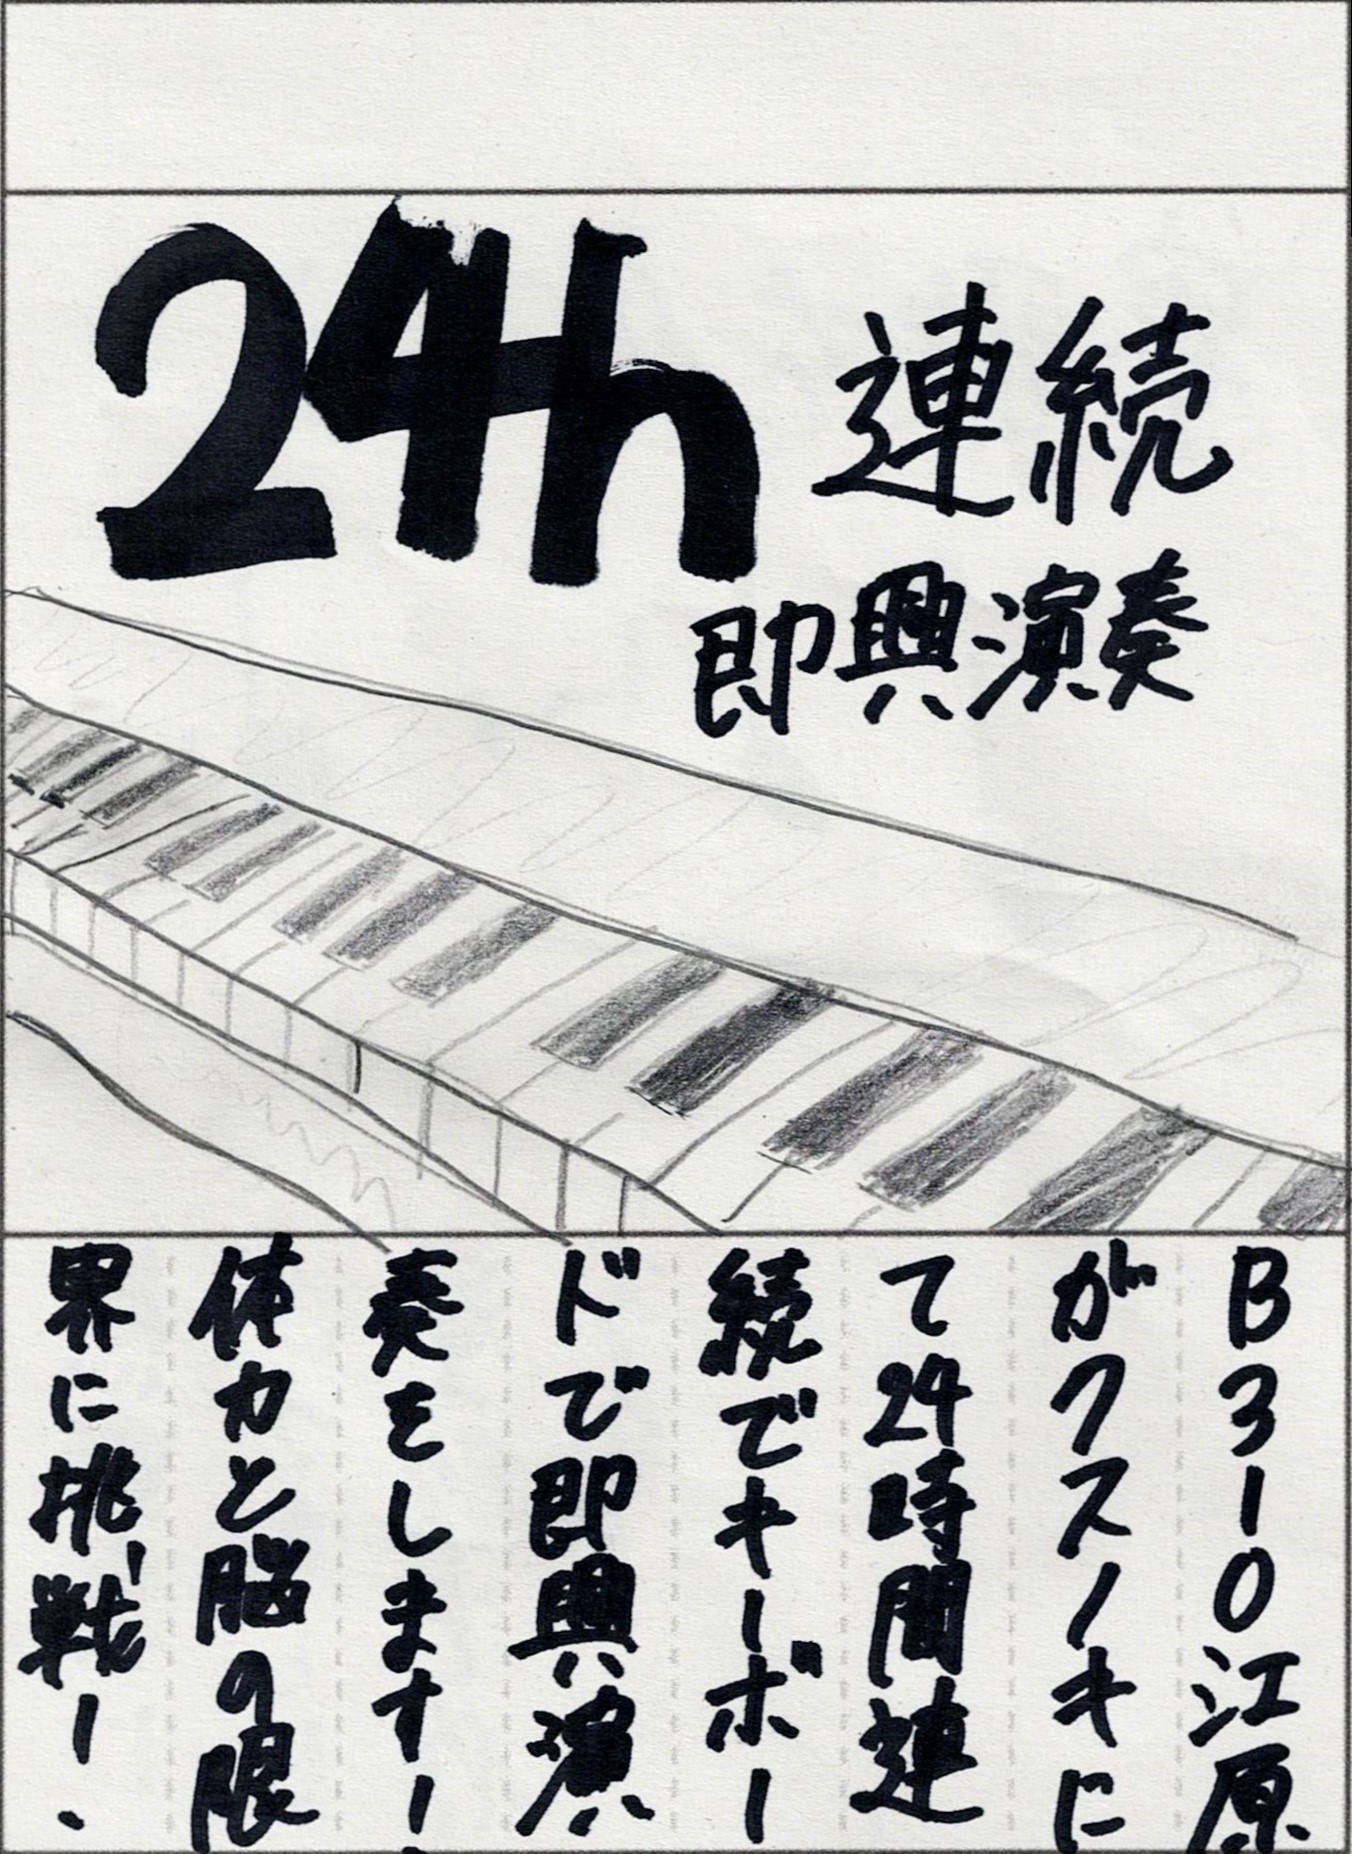 24h
連続
即興演奏
B310江原
がクスノキに
て24時間連
続でキーボー
ドで即興演
奏をします！
体力と脳の限
界に挑戦！